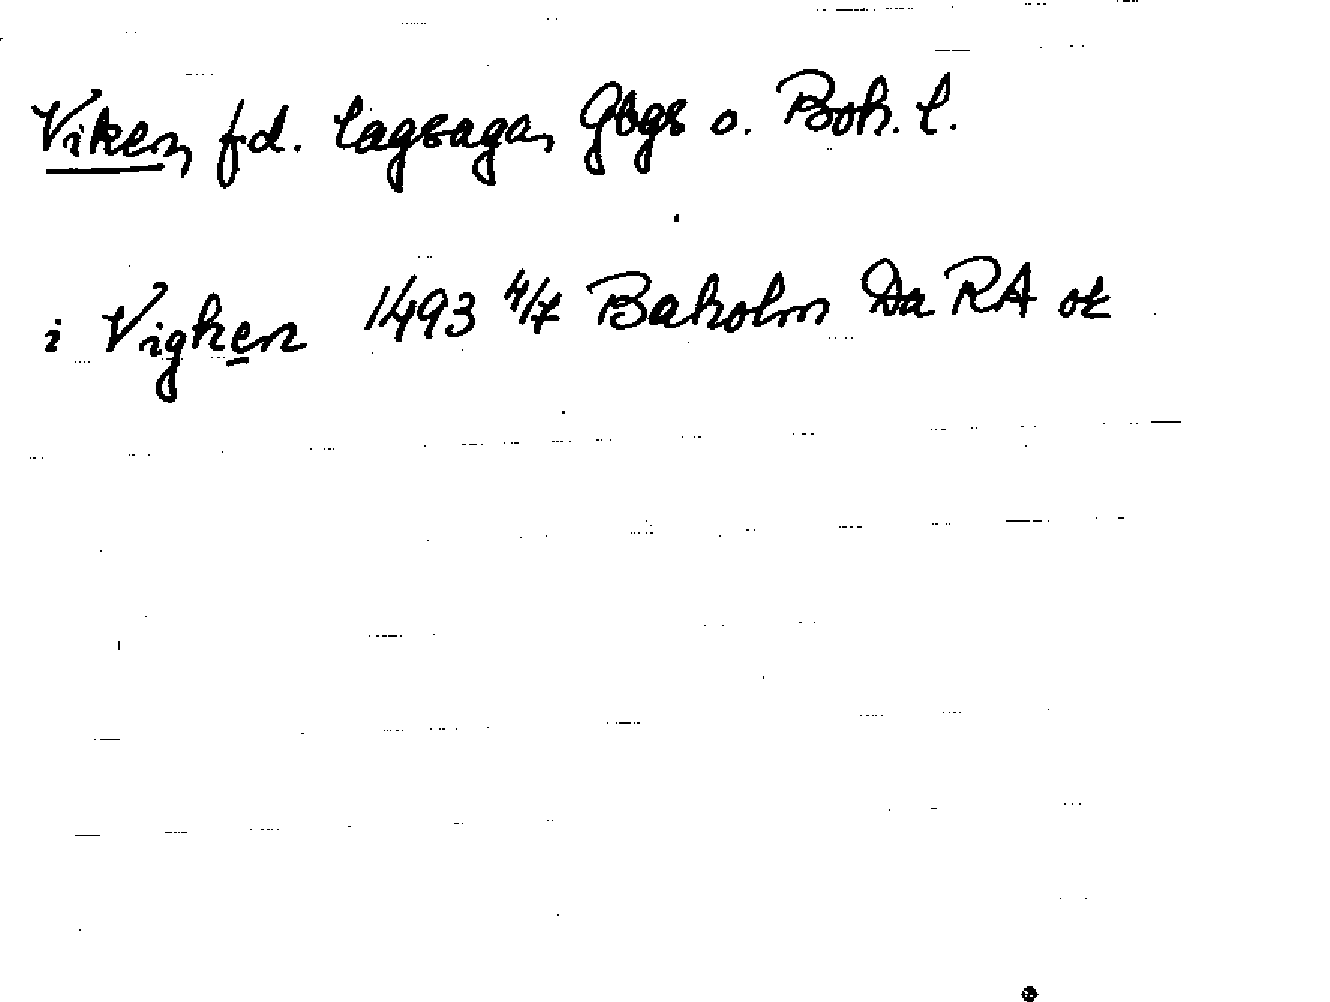 Viken, fd. lagsaga, Gbgs o. Boh. l.
i Vigken 1493 4/7 Baholm Da RA ok